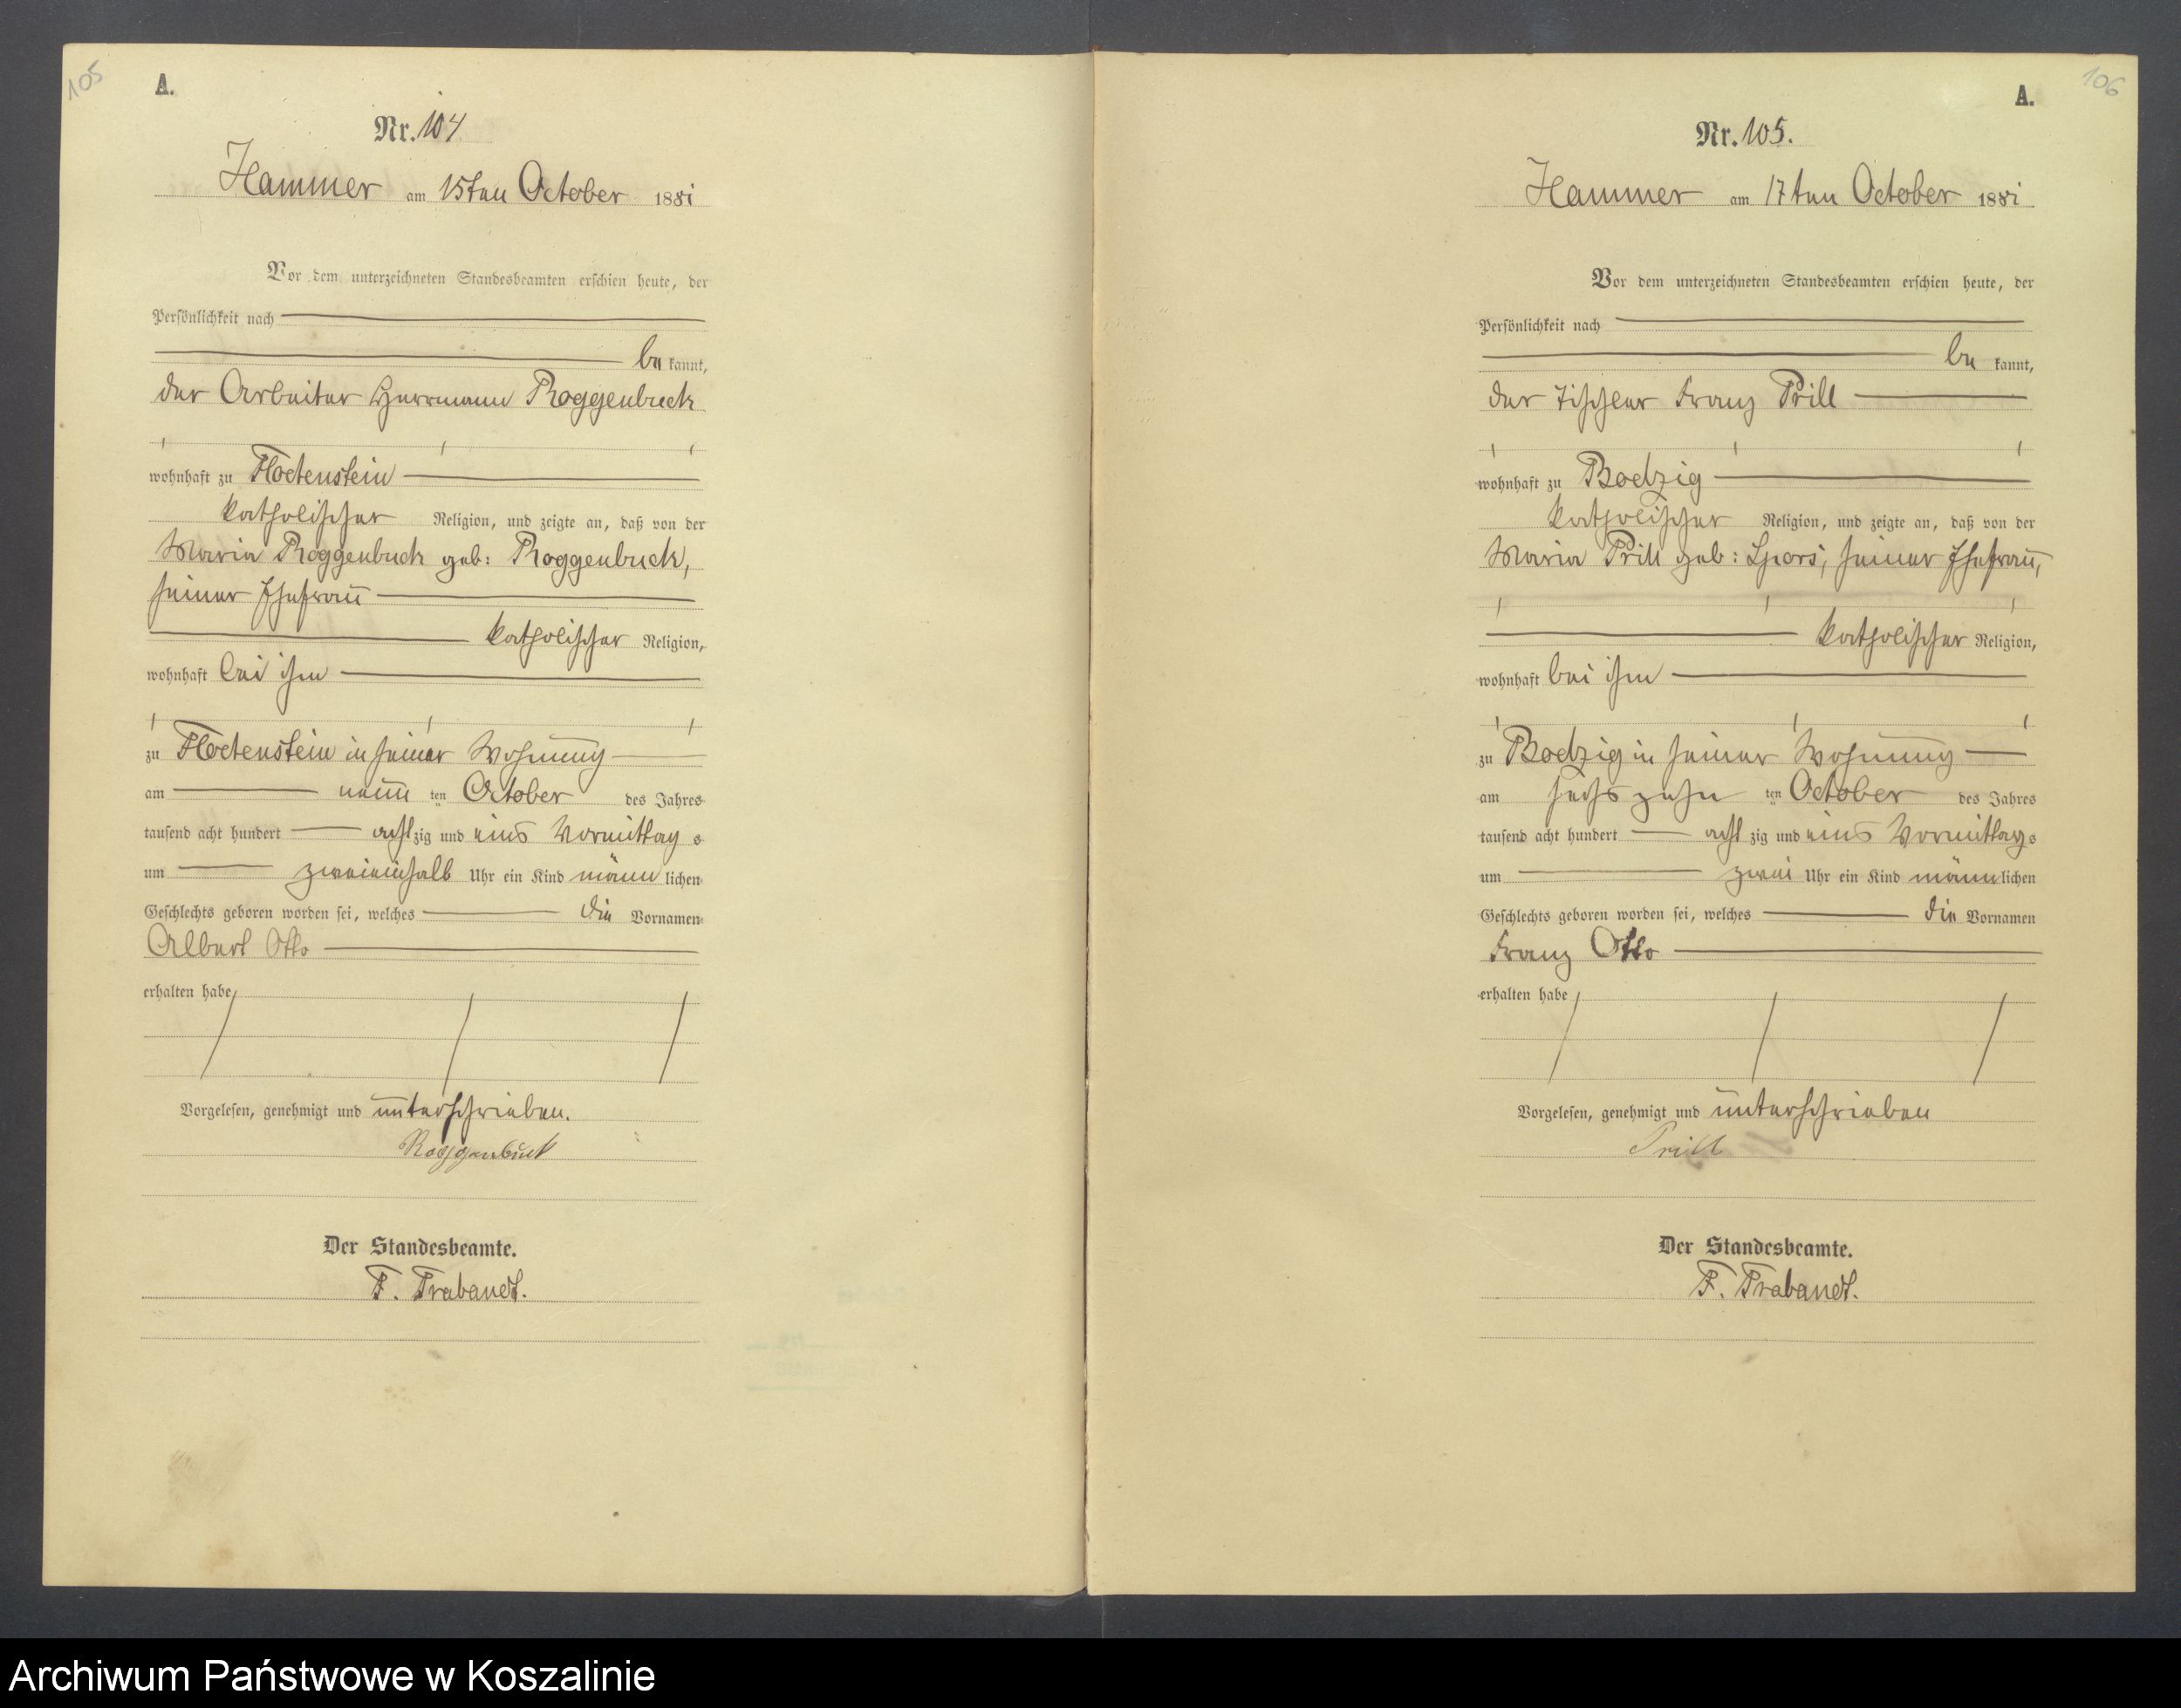 105
A.
Nr. 104
Hammer am 15ten October 1881
Vor dem unterzeichneten Standesbeamten erschien heute, der
Persönlichkeit nach
be kannt,
der Arbeiter Herrmann Roggenbuck
wohnhaft zu Flötenstein
katholischer Religion, und zeigte an, daß von der
Maria Roggenbuck geb: Roggenbuck,
seiner Ehefrau
katholischer Religion,
wohnhaft bei ihm
zu Flötenstein in seiner Wohnung
am neun ten October des Jahres
tausend acht hundert acht zig und eins Vormittag s
um zweieinhalb Uhr ein Kind männ lichen
Geschlechts geboren worden sei, welches die Vornamen
Albert Otto
erhalten habe
Vorgelesen, genehmigt und unterschrieben.
Roggenbuck
Der Standesbeamte.
F. Trabandt.
106
A.
Nr. 105.
Hammer am 17ten October 1881
Vor dem unterzeichneten Standesbeamten erschien heute, der
Persönlichkeit nach
be kannt,
der Tischler Franz Prill
wohnhaft zu Boelzig
katholischer Religion, und zeigte an, daß von der
Maria Prill geb: Spors, seiner Ehefrau,
katholischer Religion,
wohnhaft bei ihm
zu Boelzig in seiner Wohnung
am sechszehn ten October des Jahres
tausend acht hundert acht zig und eins Vormittag s
um zwei Uhr ein Kind männ lichen
Geschlechts geboren worden sei, welches die Vornamen
Franz Otto
erhalten habe
Vorgelesen, genehmigt und unterschrieben
Prill
Der Standesbeamte.
F. Trabandt.
Archiwum Państwowe w Koszalinie